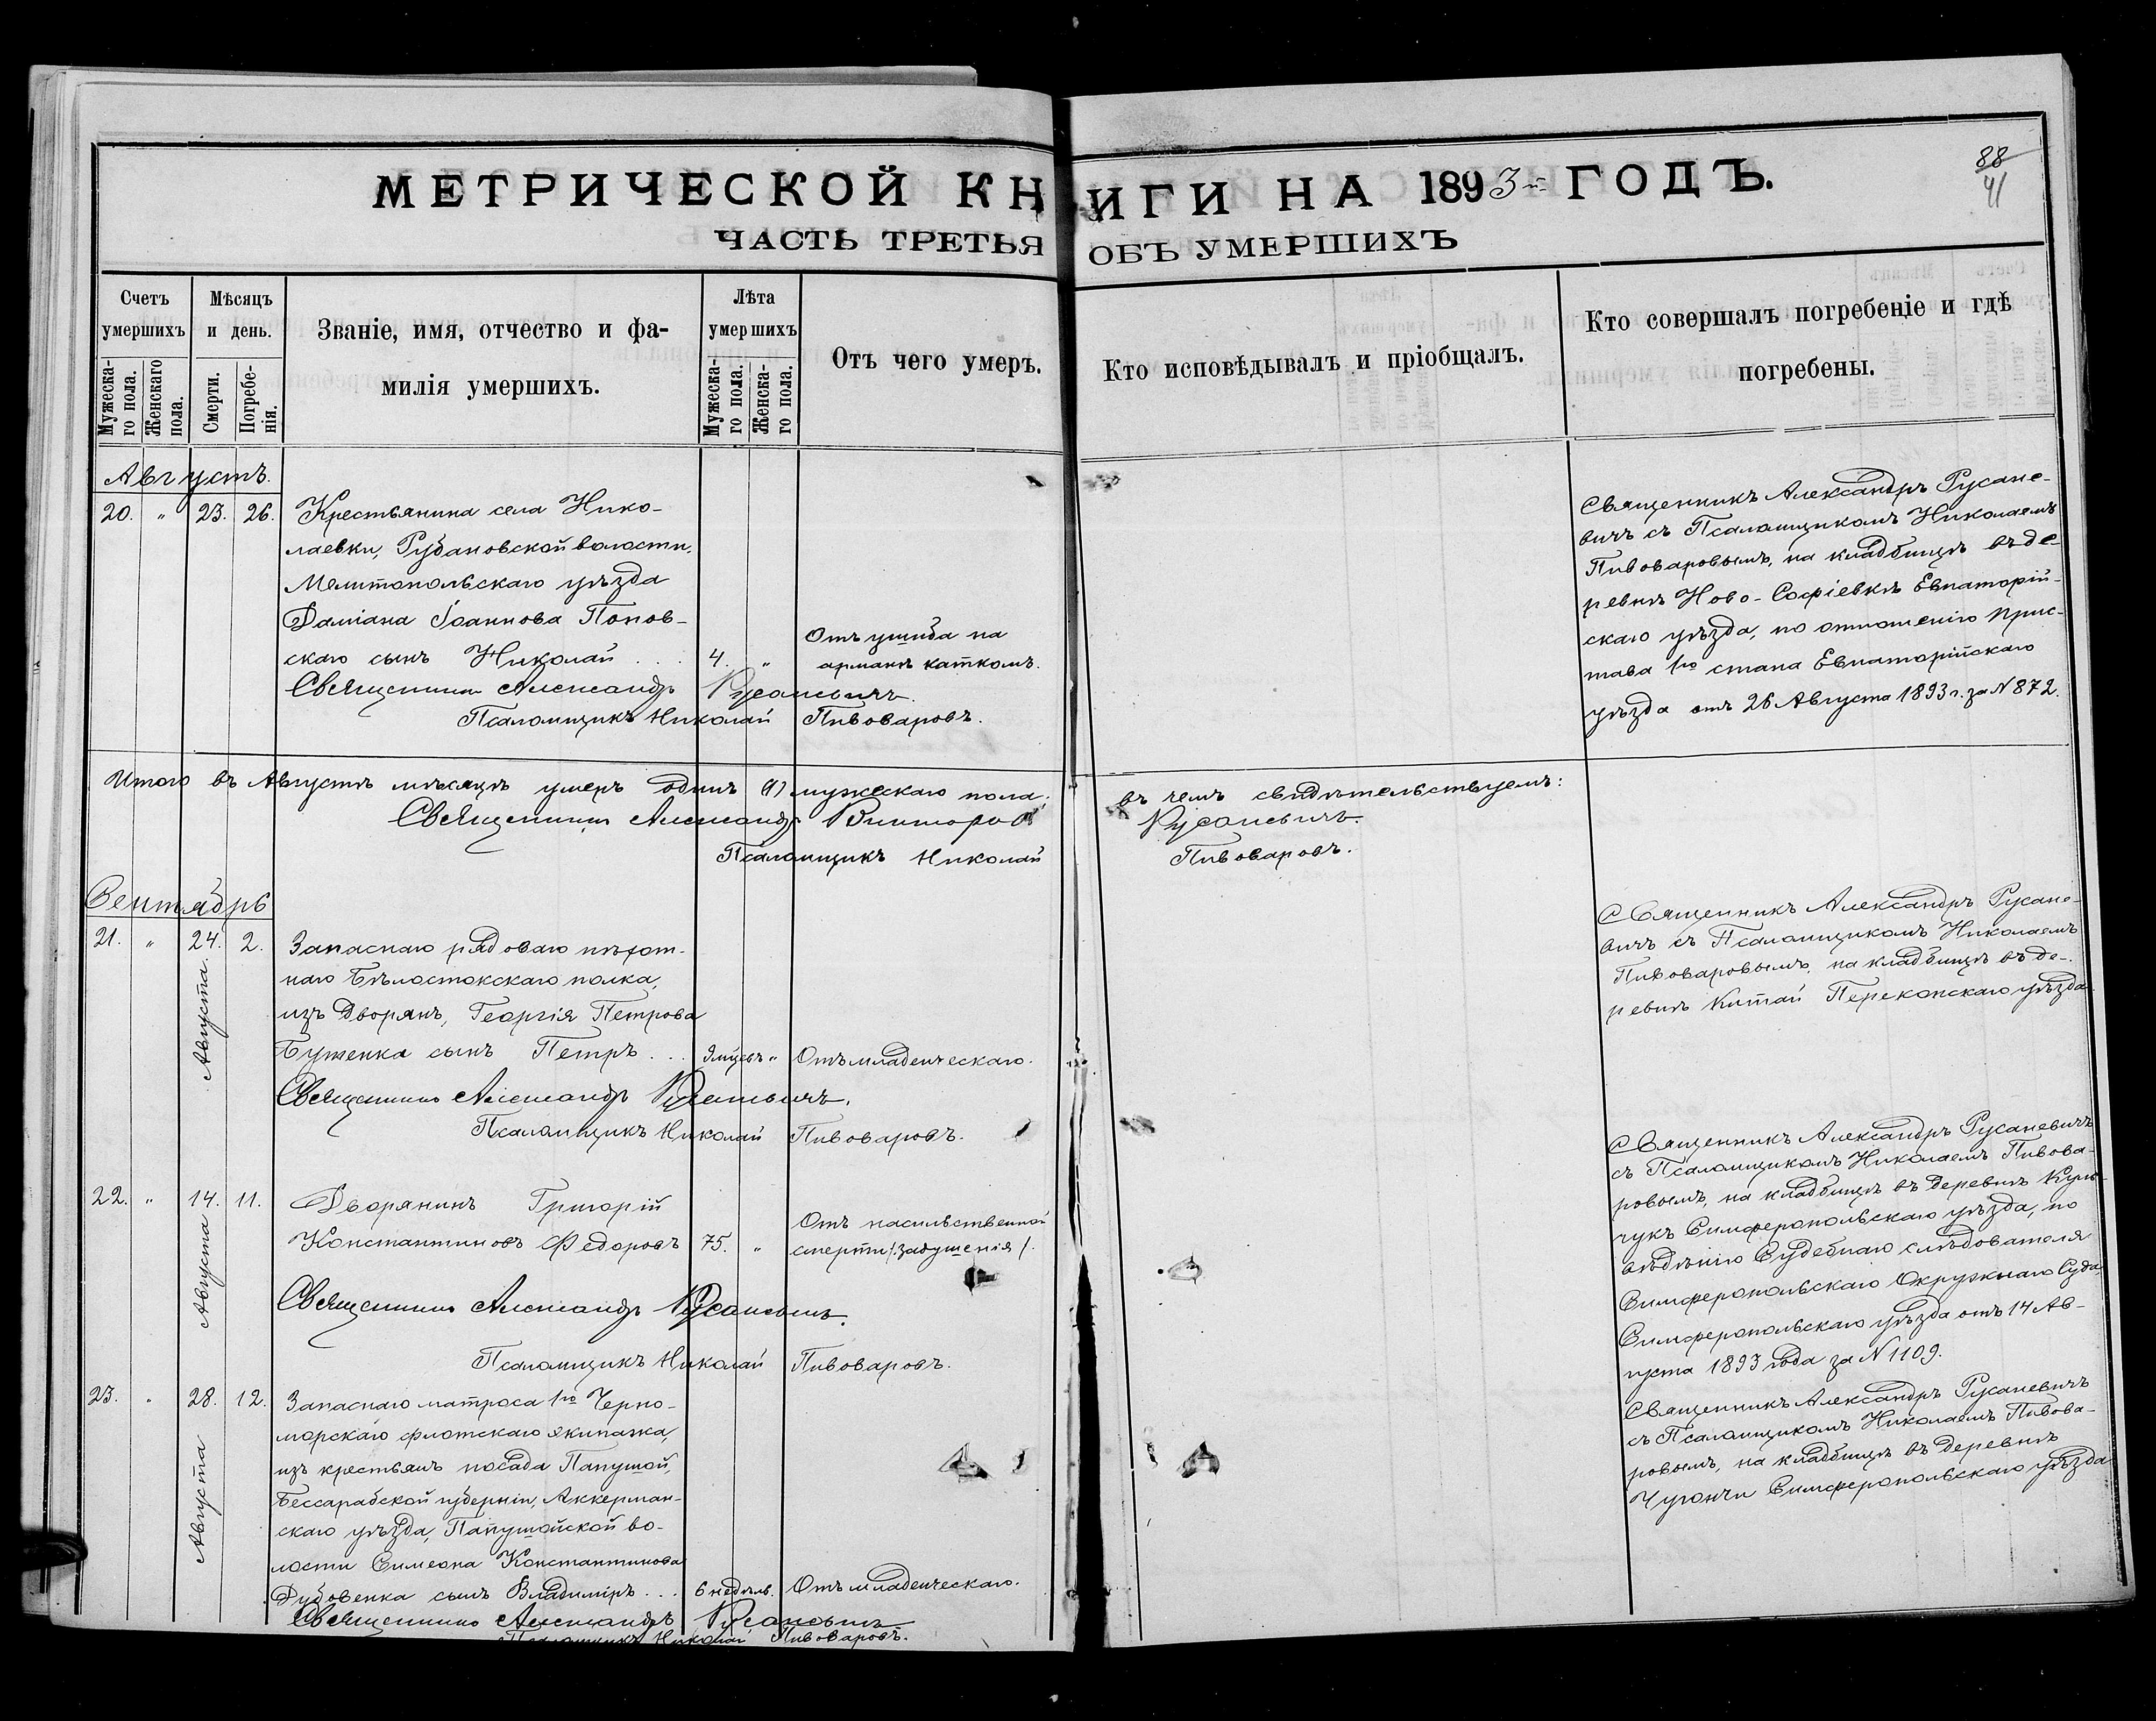 МЕТРИЧЕСКОЙ КНИГИ НА 1893-й ГОДЪ.
88
41
ЧАСТЬ ТРЕТЬЯ ОБЪ УМЕРШИХЪ
Счетъ умершихъ
Мужеска-
го пола.
Женскаго
пола.
Мѣсяцъ и день.
Смерти.
Погребе-
нія.
Званіе, имя, отчество и фа-
милія умершихъ.
Лѣта умершихъ
Мужеска-
го пола.
Женска-
го пола.
Отъ чего умеръ.
Кто исповѣдывалъ и пріобщалъ.
Кто совершалъ погребеніе и гдѣ
погребены.
Августъ.
20. " 23. 26. Крестьянина села Нико-
лаевки, Рубановской волости,
Мелитопольскаго уѣзда
Даміана Іоаннова Попов-
скаго сынъ Николай . . . 4. "
Отъ ушиба на
арманѣ каткомъ.
Священникъ Александръ Русаневичъ.
Псаломщикъ Николай Пивоваровъ.
Священникъ Александръ Русане-
вичъ съ Псаломщикомъ Николаемъ
Пивоваровымъ, на кладбищѣ въ де-
ревнѣ Ново-Софіевкѣ Евпаторій-
скаго уѣзда, по отношенію Прис-
тава 1го стана Евпаторійскаго
уѣзда отъ 26 Августа 1893 г. за N 872.
Итого въ Августѣ мѣсяцѣ умеръ одинъ (1) мужескаго пола, въ чемъ свидѣтельствуемъ:
Священникъ Александръ Викторовъ Русаневичъ.
Псаломщикъ Николай Пивоваровъ.
Сентябрь
21. " 24. Августа. 2. Запаснаго рядоваго пѣхот-
наго Бѣлостокскаго полка,
изъ Дворянъ, Георгія Петрова
Буженка сынъ Петръ . . . 9 мѣсц. " Отъ младенческаго.
Священникъ Александръ Русаневичъ.
Псаломщикъ Николай Пивоваровъ.
Священникъ Александръ Русане-
вичъ съ Псаломщикомъ Николаемъ
Пивоваровымъ, на кладбищѣ въ де-
ревнѣ Китай Перекопскаго уѣзда
22. " 14. Августа 11. Дворянинъ Григорій
Константиновъ Федоровъ 75. "
Отъ насильственной
смерти /задушенія/.
Священникъ Александръ Русаневичъ.
Псаломщикъ Николай Пивоваровъ.
Священникъ Александръ Русаневичъ
съ Псаломщикомъ Николаемъ Пивова-
ровымъ, на кладбищѣ въ деревнѣ Куль-
чукъ Симферопольскаго уѣзда, по
вѣдѣнію Судебнаго слѣдователя
Симферопольскаго Окружнаго Суда,
Симферопольскаго уѣзда отъ 14 Ав-
густа 1893 года за N 1109.
23. " 28. Августа 12. Запаснаго матроса 1го Черно-
морскаго флотскаго экипажа,
изъ крестьянъ посада Папушой,
Бессарабской губерніи, Аккерман-
скаго уѣзда, Папушойской во-
лости Симеона Константинова
Дубовенка сынъ Владиміръ . . . 6 недѣль. Отъ младенческаго.
Священникъ Александръ Русаневичъ
Псаломщикъ Николай Пивоваровъ.
Священникъ Александръ Русаневичъ
съ Псаломщикомъ Николаемъ Пивова-
ровымъ, на кладбищѣ въ деревнѣ
Чугончи Симферопольскаго уѣзда